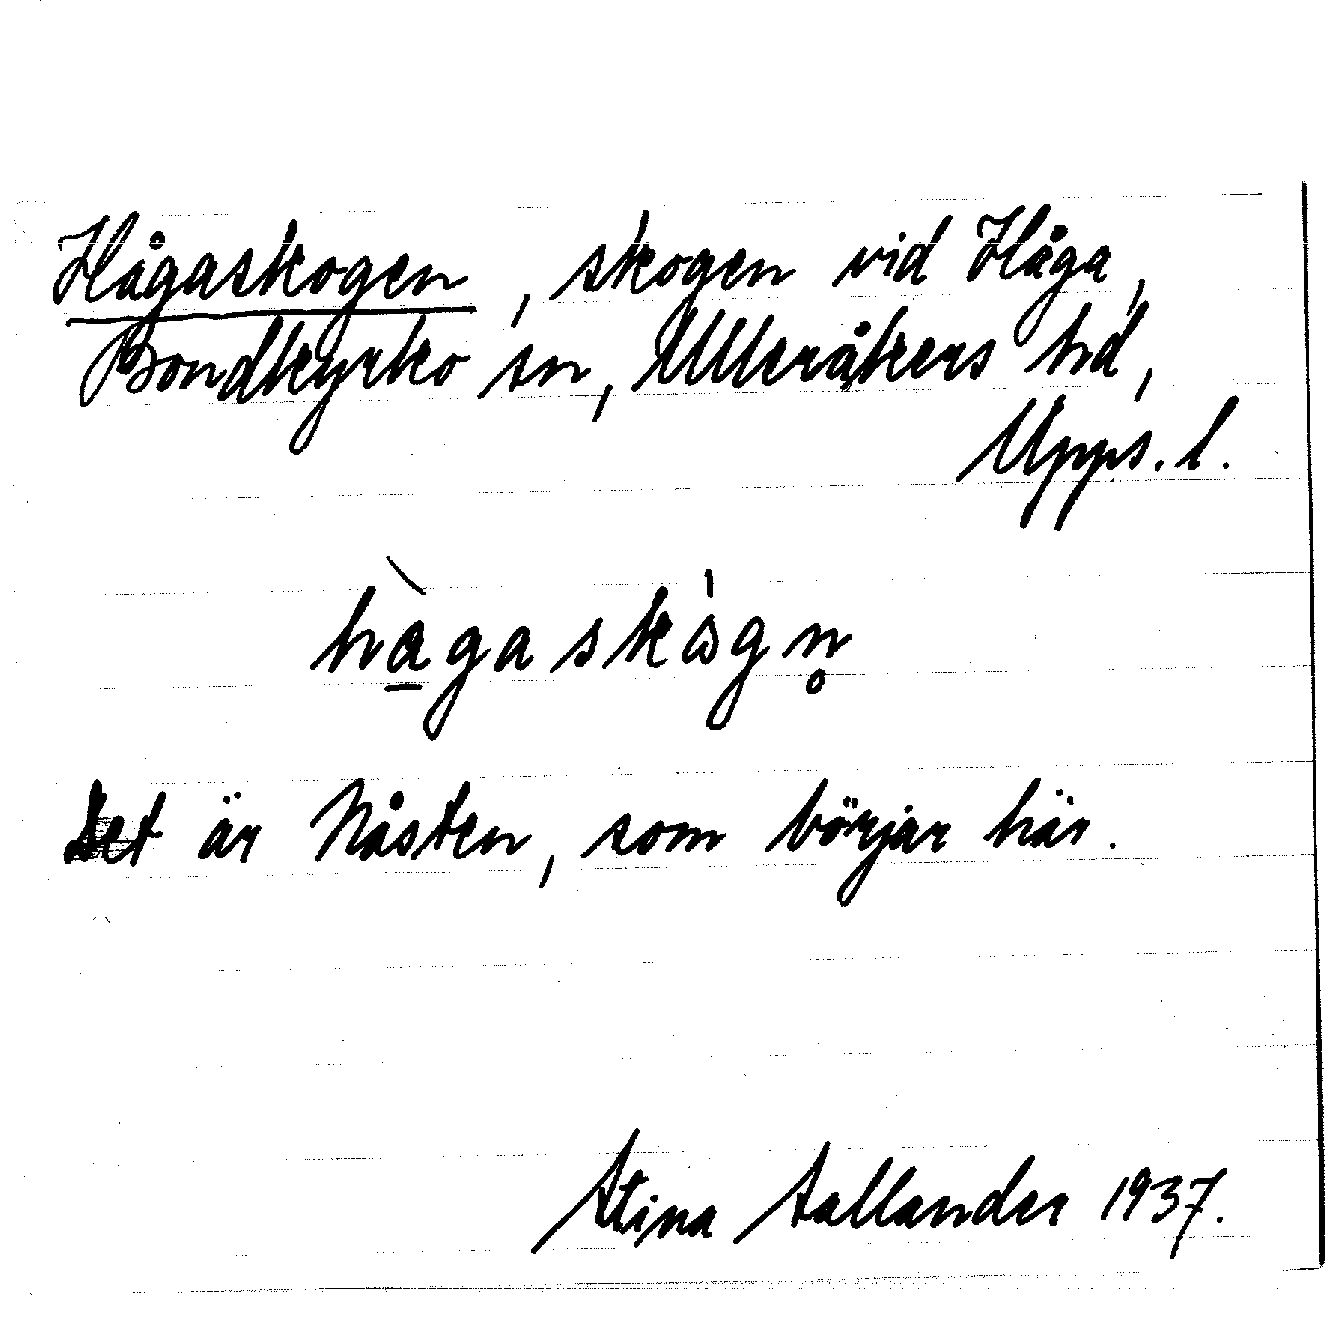 Hågaskogen, skogen vid Håga,
Bondkyrko sn, Ulleråkers hd,
Upps. l.
hà̱gaskɷ̀gn̥
Det är Nåsten, som börjar här.
Stina Sallander 1937.